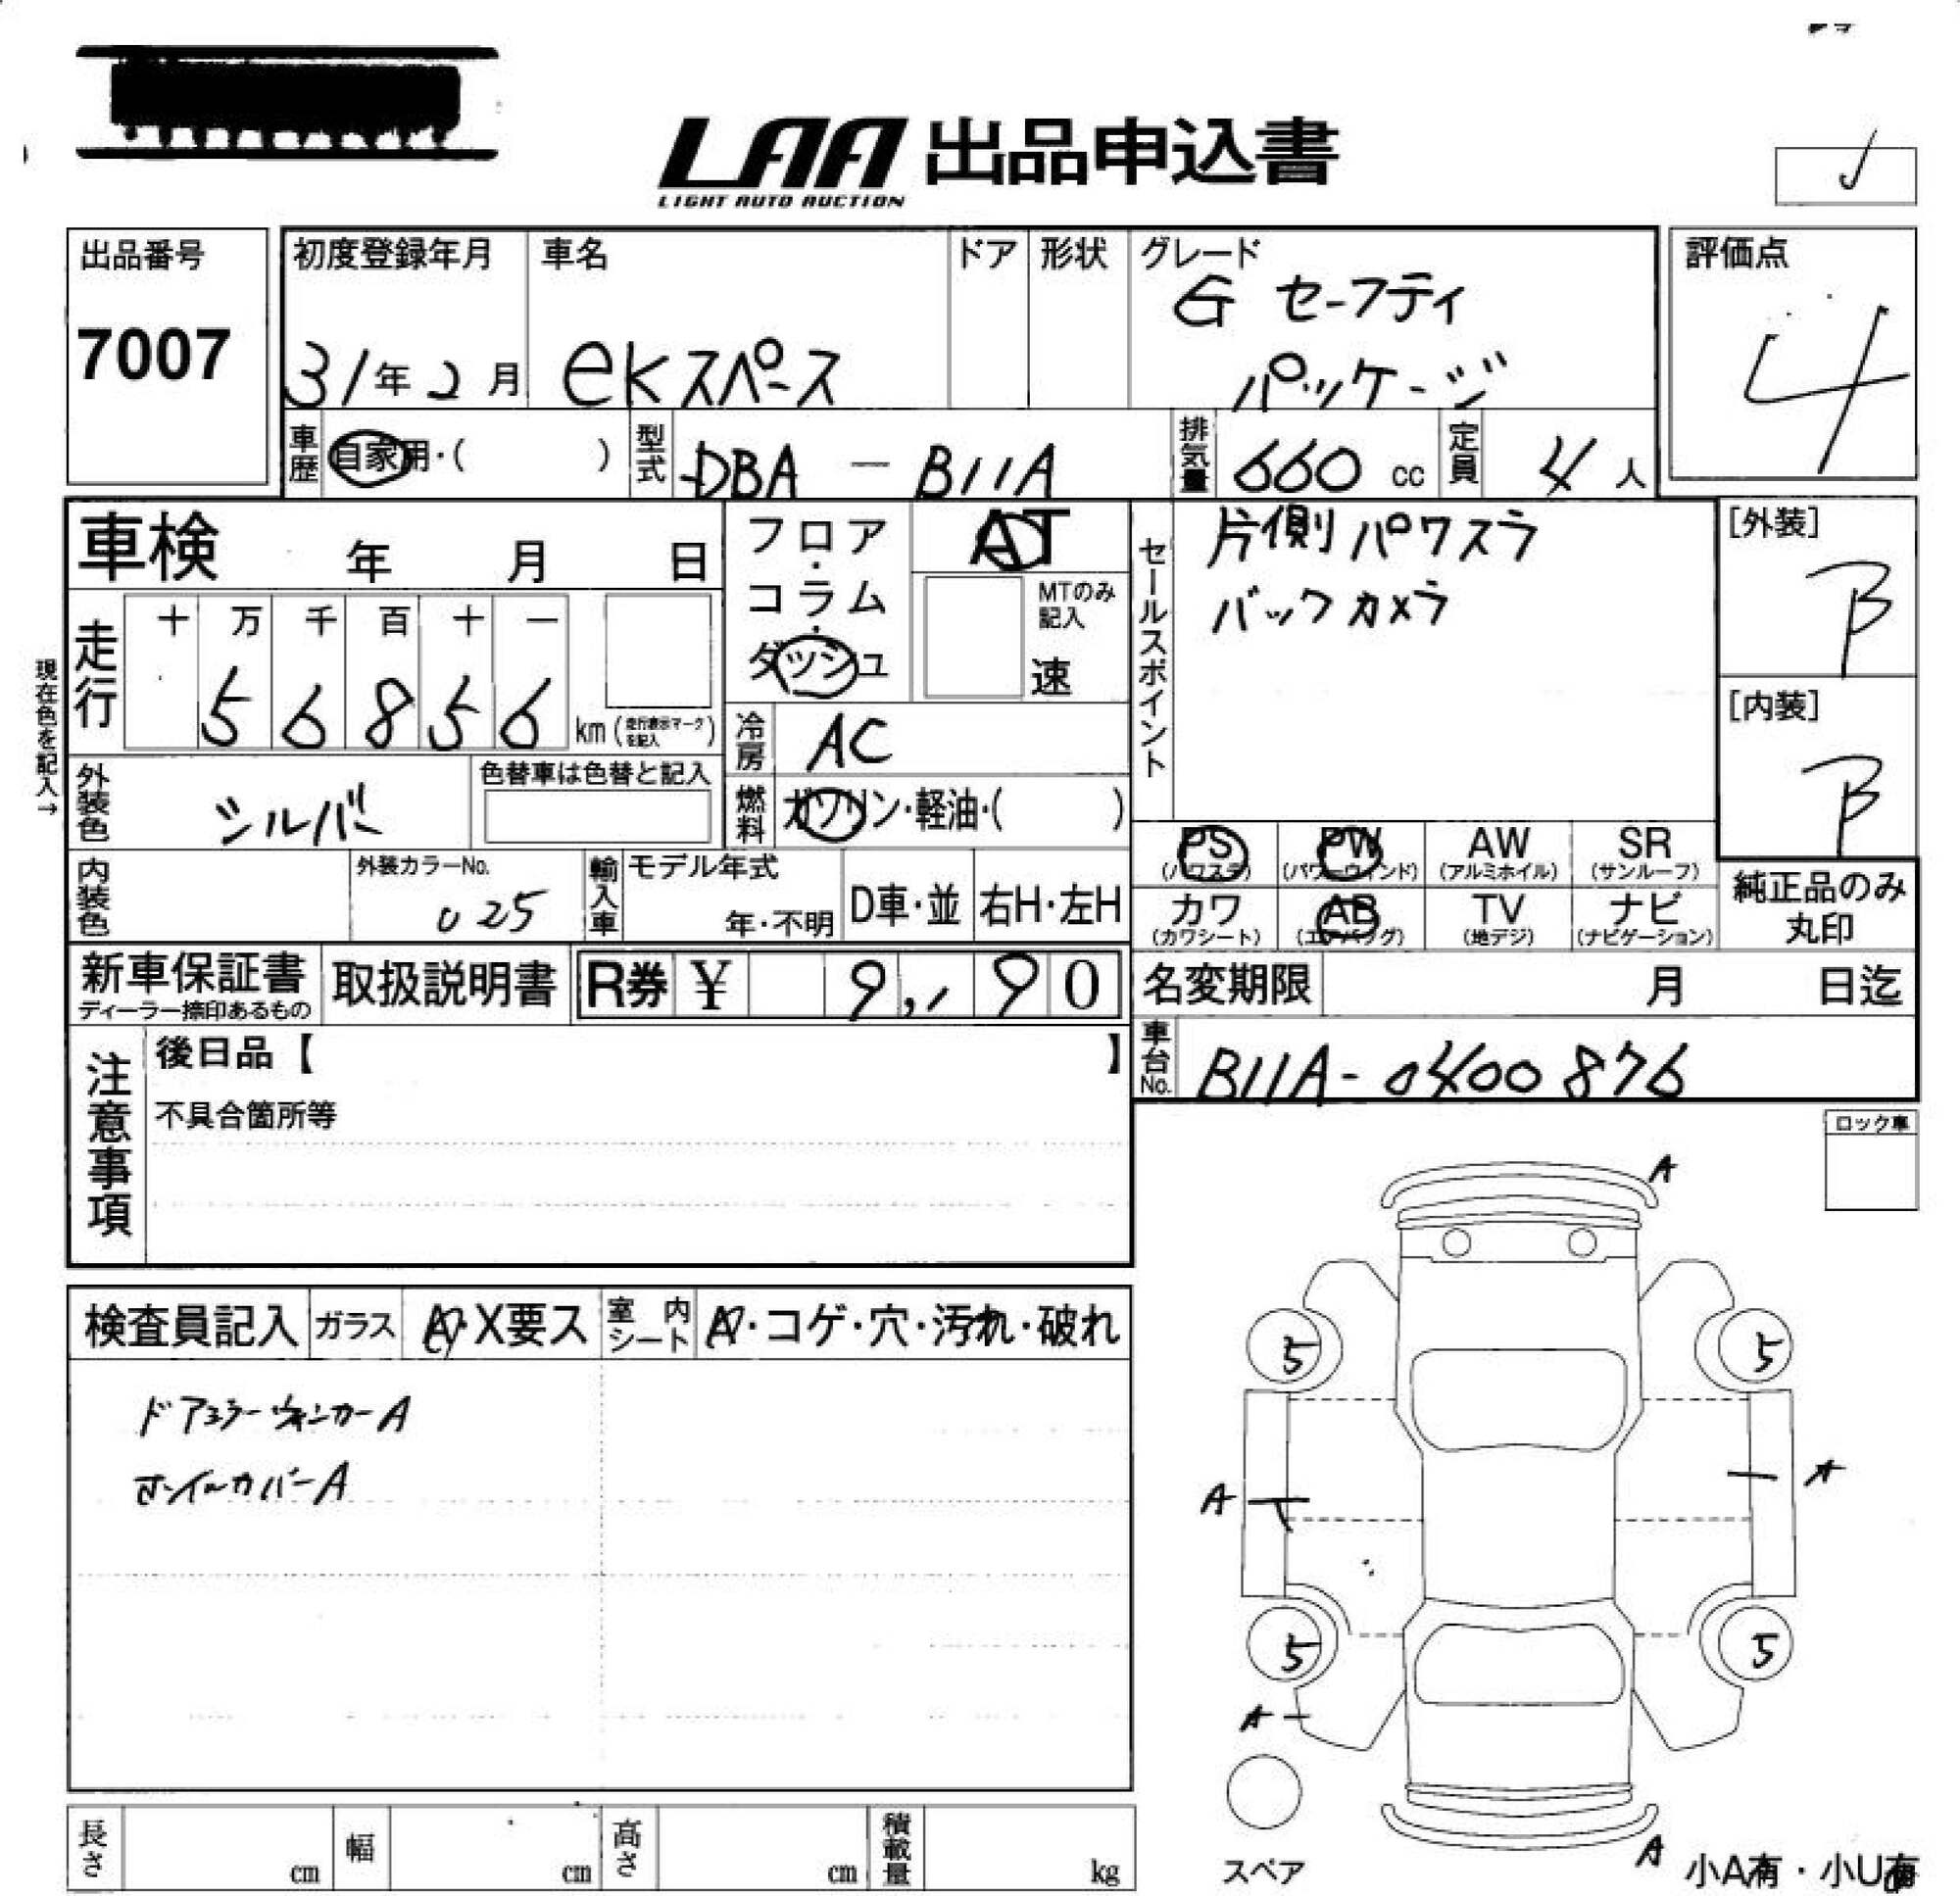 LAA 出品申込書
LIGHT AUTO AUCTION
出品番号
7007
初度登録年月
31年2月
車名
eKスペース
ドア
形状
グレード
G セーフティ
パッケージ
評価点
4
車歴
自家用・( )
型式
DBA - B11A
排気量
660 cc
定員
4 人
車検 年 月 日
フロア・
コラム・
ダッシュ
AT
MTのみ
記入
速
セールスポイント
片側パワスラ
バックカメラ
[外装]
B
[内装]
B
現在色を記入→
走行
十 万 千 百 十 一
5 6 8 5 6 km(走行表示マークを記入)
冷房
AC
外装色
シルバー
色替車は色替と記入
燃料
ガソリン・軽油・( )
PS
(パワステ)
PW
(パワーウィンド)
AW
(アルミホイル)
SR
(サンルーフ)
カワ
(カワシート)
AB
(エアバッグ)
TV
(地デジ)
ナビ
(ナビゲーション)
純正品のみ
丸印
内装色
外装カラーNo.
U25
輸入車
モデル年式
年・不明
D車・並
右H・左H
新車保証書
ディーラー捺印あるもの
取扱説明書
R券 ¥ 9,190
名変期限 月 日迄
車台No.
B11A-0400876
注意事項
後日品【 】
不具合箇所等
ロック車
検査員記入
ガラス
A・X要ス
室内シート
A・コゲ・穴・汚れ・破れ
ドアミラーウィンカーA
ホイールカバーA
A
5
5
A
A
5
5
A
A
スペア
小A有・小U有
長さ cm
幅 cm
高さ cm
積載量 kg